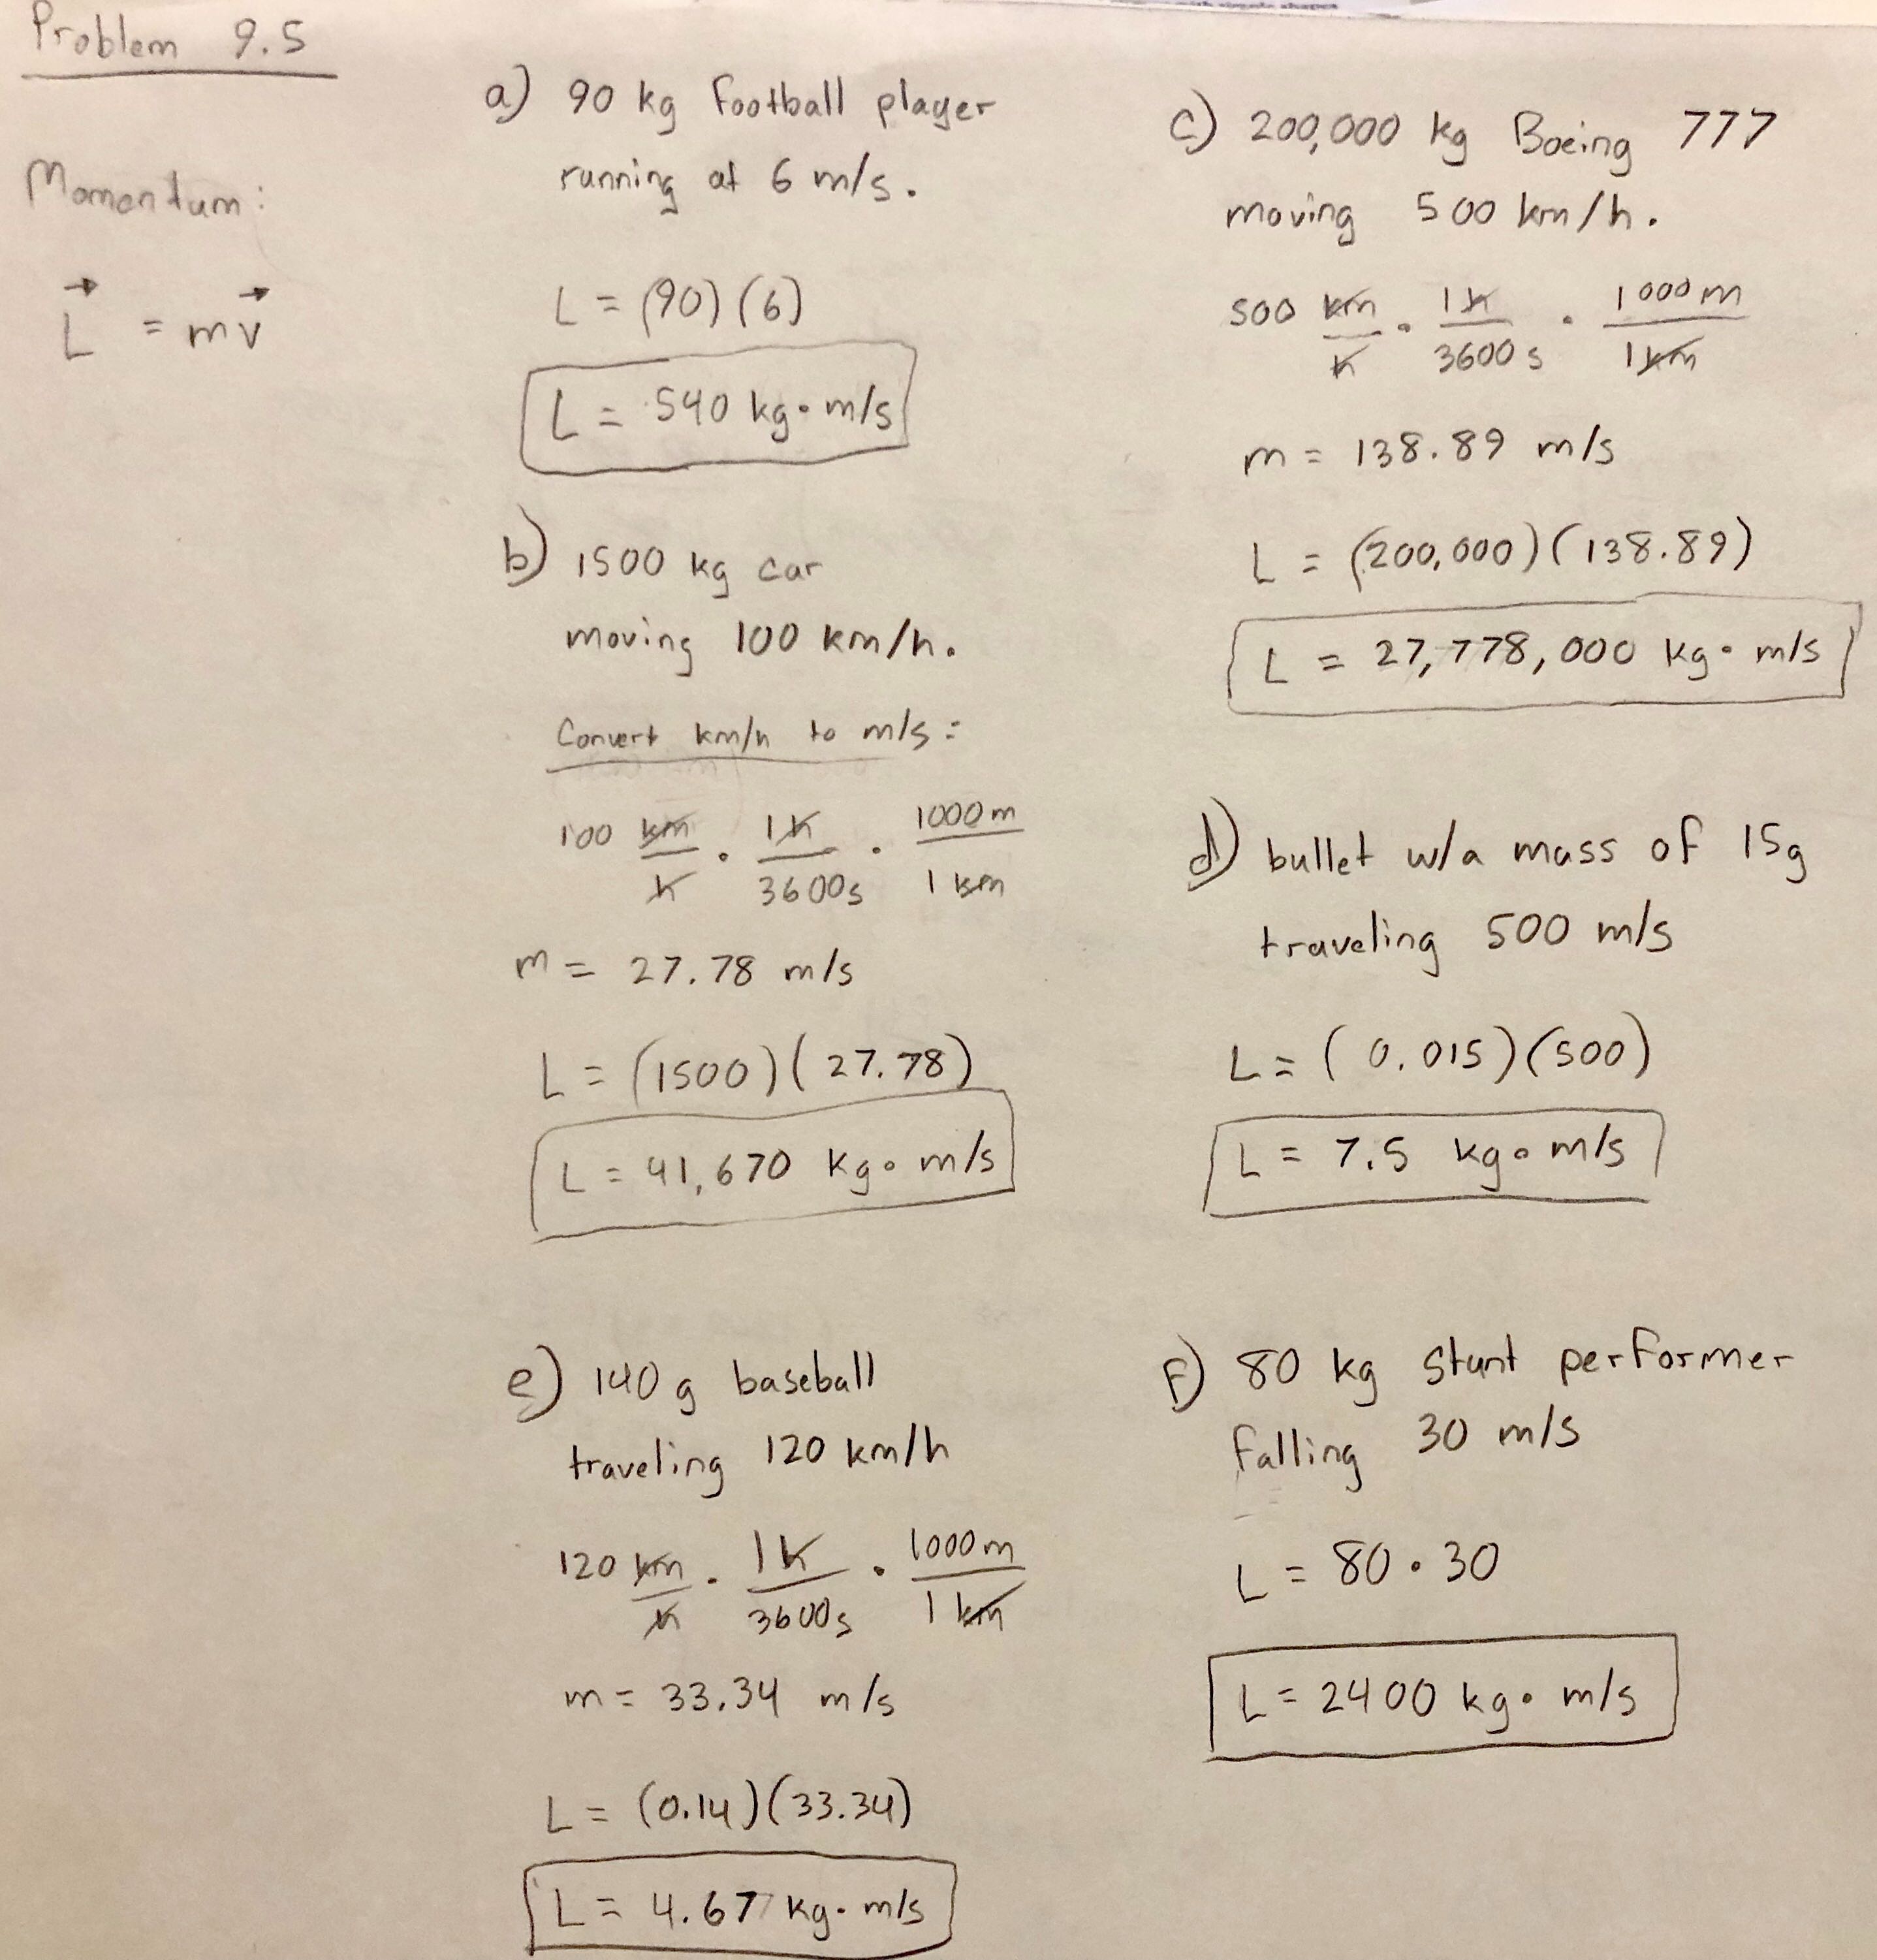 Problem 9.5
Momentum:
L⃗ = mv⃗
a) 90 kg football player
running at 6 m/s.
L = (90)(6)
L = 540 kg·m/s
b) 1500 kg car
moving 100 km/h.
Convert km/h to m/s:
100 km/h · 1h/3600s · 1000m/1km
m = 27.78 m/s
L = (1500)(27.78)
L = 41,670 kg·m/s
c) 200,000 kg Boeing 777
moving 500 km/h.
500 km/h · 1h/3600s · 1000m/1km
m = 138.89 m/s
L = (200,000)(138.89)
L = 27,778,000 kg·m/s
d) bullet w/a mass of 15g
traveling 500 m/s
L = (0.015)(500)
L = 7.5 kg·m/s
e) 140 g baseball
traveling 120 km/h
120 km/h · 1h/3600s · 1000m/1km
m = 33.34 m/s
L = (0.14)(33.34)
L = 4.67 kg·m/s
f) 80 kg stunt performer
falling 30 m/s
L = 80·30
L = 2400 kg·m/s